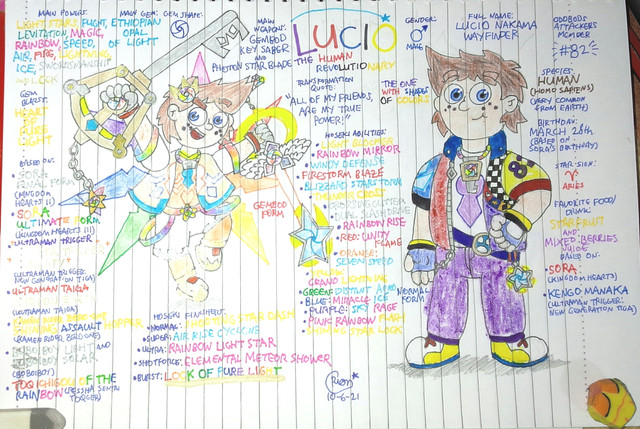 MAIN POWERS:
LIGHT, STARS, FLIGHT,
LEVITATION, MAGIC,
RAINBOW, SPEED,
AIR, FIRE, LIGHTNING,
ICE, SWORDSMANSHIP
AND LOCK
MAIN GEM:
ETHIOPIAN
OPAL
OF LIGHT
GEM SHAPE:
GEM
BURST:
HEART
OF
PURE
LIGHT
BASED ON:
SORA
FINAL FORM
(KINGDOM
HEARTS II)
SORA
ULTIMATE FORM
(KINGDOM HEARTS III)
ULTRAMAN TRIGGER
(ULTRAMAN TRIGGER:
NEW GENERATION TIGA)
ULTRAMAN TAIGA
(ULTRAMAN TAIGA)
SHINING ASSAULT HOPPER
(KAMEN RIDER ZERO-ONE)
BOBOIBOY LIGHT AND
SOLAR
(BOBOIBOY)
TOQ ICHIGOU OF THE
RAINBOW (RESSHA SENTAI
TOQGER)
MAIN
WEAPONS:
GEMBOD
KEY SABER
AND
PHOTON STAR BLADE
LUCIO
THE HUMAN
REVOLUTIONARY
TRANSFORMATION
QUOTE:
"ALL OF MY FRIENDS,
ARE MY TRUE
POWER!"
HOSEKI ABILITIES:
LIGHT BLOOMER
RAINBOW MIRROR
WINDY DEFENSE
FIRESTORM BLAZE
BLIZZARD STARSTORM
RAINBOW RISE
RED: UNITY
FLAME
ORANGE:
SEVEN SPEED
YELLOW:
GRAND LIGHTNING
GREEN: DISTANT AERO
BLUE: MIRACLE ICE
PURPLE: SKY RAGE
PINK: RAINBOW RUSH
SHINING STAR LOCK
GEMBOD
FORM
HOSEKI FINISHERS:
NORMAL: SHOOTING STAR DASH
SUPER: AIR RIDE CYCLONE
ULTRA: RAINBOW LIGHT STAR
SHOTFORCE: ELEMENTAL METEOR SHOWER
BURST: LOCK OF PURE LIGHT
10-6-21
GENDER:
MALE
THE ONE
WITH SHADES
OF COLORS
NORMAL
FORM
FULL NAME:
LUCIO NAKAMA
WAYFINDER
ODDBODS
ATTACKERS
MEMBER
#82
SPECIES:
HUMAN
(HOMO SAPIENS)
(VERY COMMON
FROM EARTH)
BIRTHDAY:
MARCH 28th
(BASED ON
SORA'S BIRTHDAY)
STAR SIGN:
ARIES
FAVORITE FOOD/
DRINK:
STARFRUIT
AND
MIXED BERRIES
JUICE
BASED ON:
SORA
(KINGDOM HEARTS)
KENGO MANAKA
(ULTRAMAN TRIGGER:
NEW GENERATION TIGA)